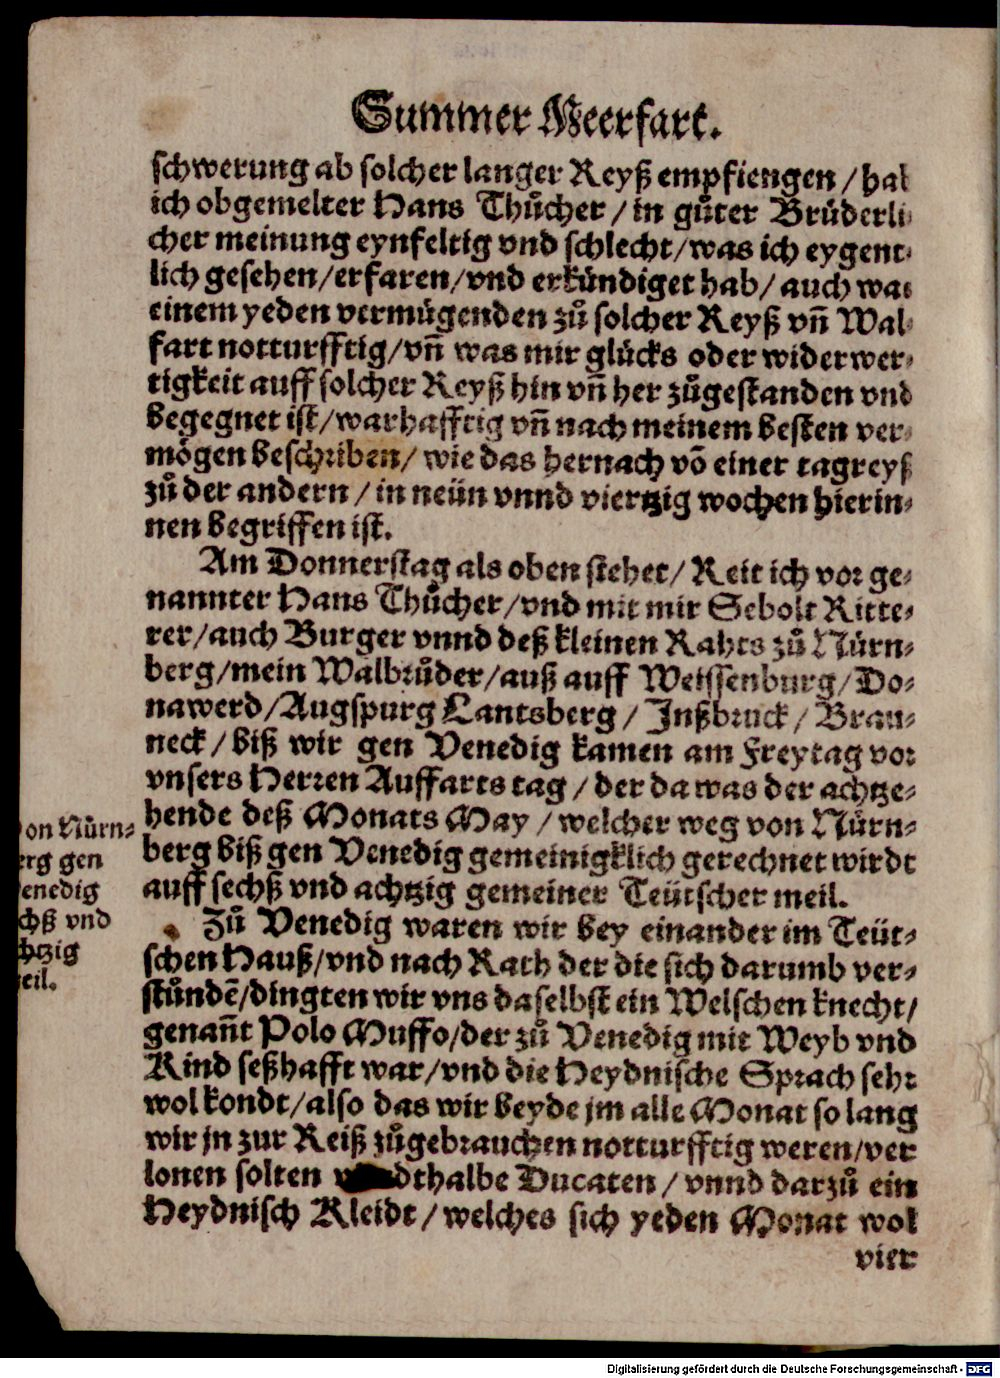 Summer Meerfart.
schwerung ab solcher langer Reyß empfiengen / hab
ich obgemelter Hans Thůcher / in gůter Brüderli
cher meinung eynfeltig vnd schlecht/was ich eygent⸗
lich gesehen/erfaren/vnd erkündiget hab/ auch was
einem yeden vermügenden zů solcher Reyß vñ Wal⸗
fart notturfftig/vñ was mir glücks oder widerwer⸗
tigkeit auff solcher Reyß hin vñ her zůgestanden vnd
begegnet ist/warhafftig vñ nach meinem besten ver⸗
mögen beschriben/ wie das hernach võ einer tagreyß
zů der andern / in neün vnnd viertzig wochen hierin⸗
nen begriffen ist.
Am Donnerstag als oben stehet/ Reit ich vor ge⸗
nannter Hans Thůcher/vnd mit mir Sebolt Ritte⸗
rer/auch Burger vnnd deß kleinen Rahts zů Nürn⸗
berg/mein Walbrůder/auß auff Weissenburg/Do⸗
nawerd/Augspurg Lantsberg / Jnßbruck/ Brau⸗
neck/ biß wir gen Venedig kamen am Freytag vor
vnsers Herren Auffarts tag / der da was der achtze⸗
hende deß Monats May / welcher weg von Nürn⸗
berg biß gen Venedig gemeinigklich gerechnet wirdt
auff sechß vnd achtzig gemeiner Teütscher meil.
on Nürn⸗
rg gen
enedig
chß vnd
htzig
eil.
Zů Venedig waren wir bey einander im Teüt⸗
schen Hauß/vnd nach Rath der die sich darumb ver⸗
stůndẽ/dingten wir vns daselbst ein Welschen knecht/
genañt Polo Muffo/der zů Venedig mit Weyb vnd
Kind seßhafft war/vnd die Heydnische Sprach sehr
wol kondt/also das wir beyde jm alle Monat so lang
wir jn zur Reiß zůgebrauchen notturfftig weren/ver
lonen solten dthalbe Ducaten / vnnd darzů ein
Heydnisch Kleidt/welches sich yeden Monat wol
vier
Digitalisierung gefördert durch die Deutsche Forschungsgemeinschaft - DFG